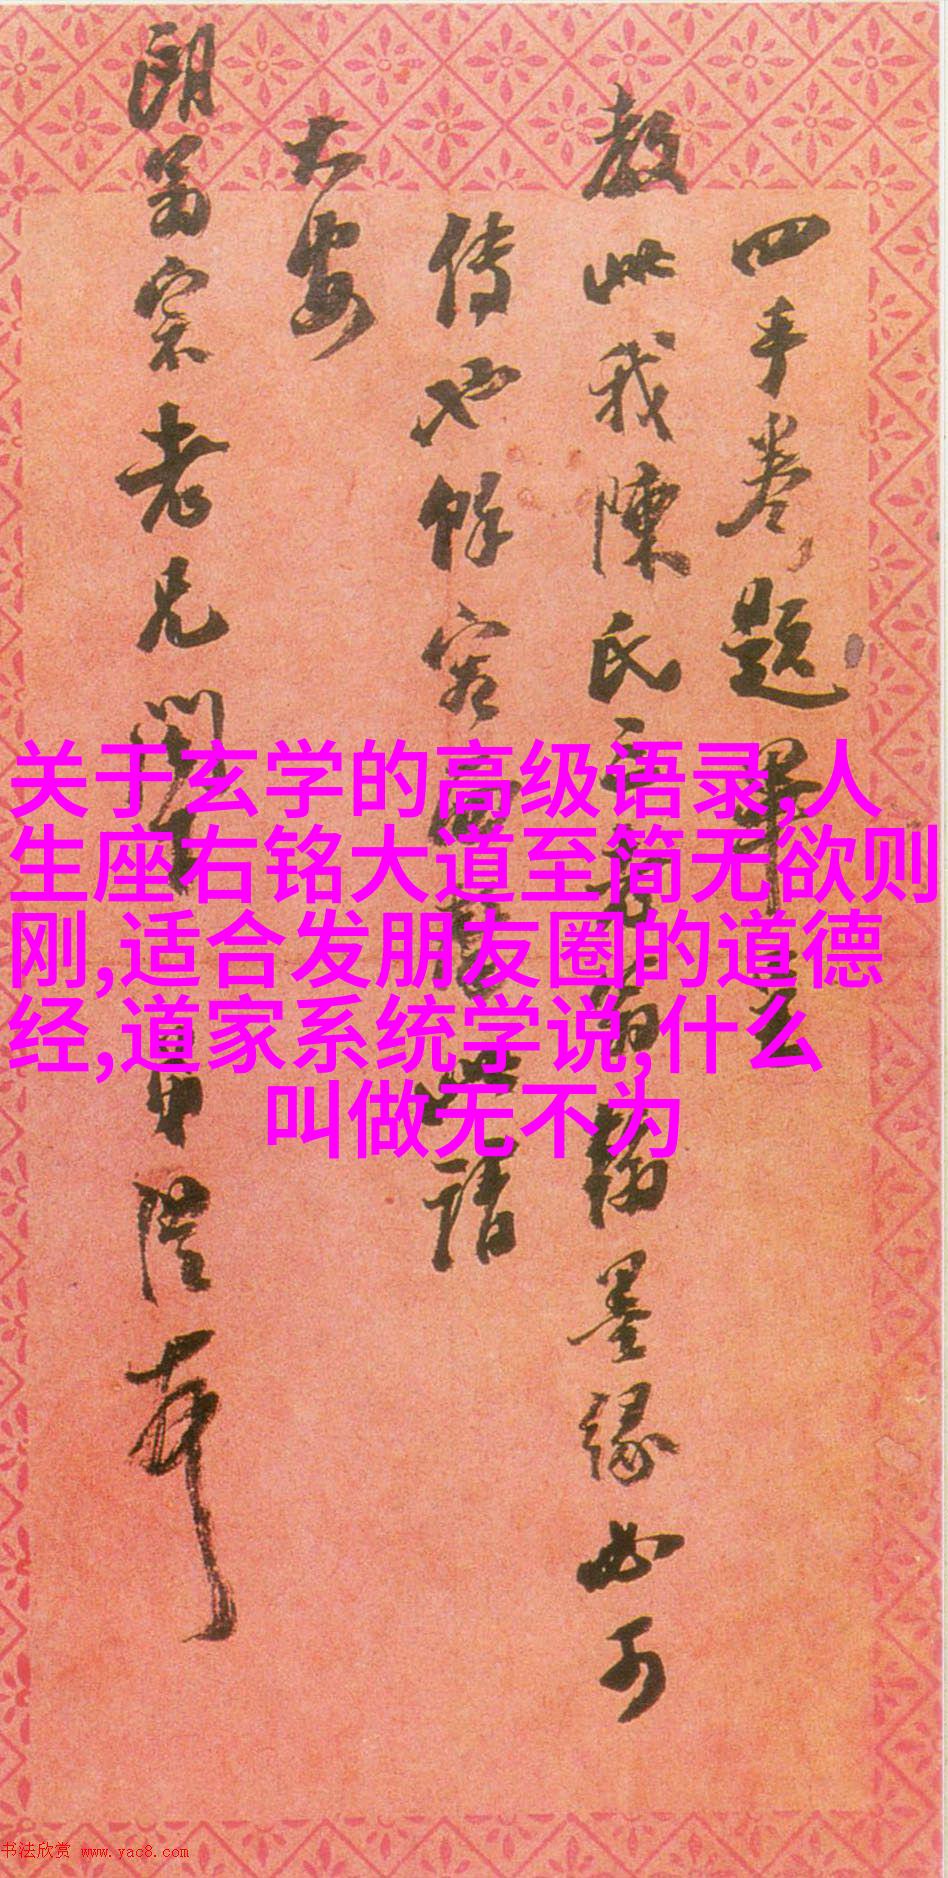 四手卷题畢奉
教此我陳氏翰墨缘也可
传也馀容面罄此請
大安
朗翁宗老兄閣下
关于玄学的高级语录,人
生座右铭大道至简无欲则
刚,适合发朋友圈的道德
经,道家系统学说,什么
叫做无不为
书法欣赏 www.yac8.com